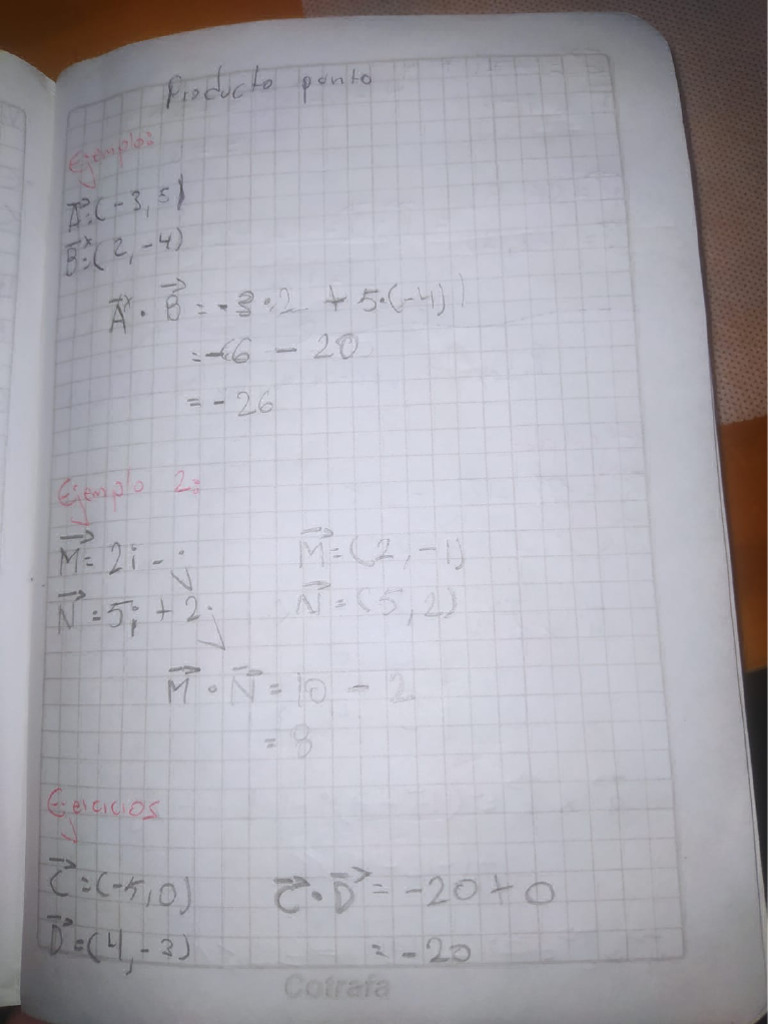 Producto punto
Ejemplo:
A⃗:(-3,5)
B⃗:(2,-4)
A⃗ · B⃗ = -3·2 + 5·(-4)
= -6 - 20
= -26
Ejemplo 2:
M⃗ = 2i - j M⃗ = (2, -1)
N⃗ = 5i + 2j N⃗ = (5, 2)
M⃗ · N⃗ = 10 - 2
= 8
Ejercicios
C⃗ = (-5,0) C⃗ · D⃗ = -20 + 0
D⃗ = (4,-3) = -20
Cotrafa